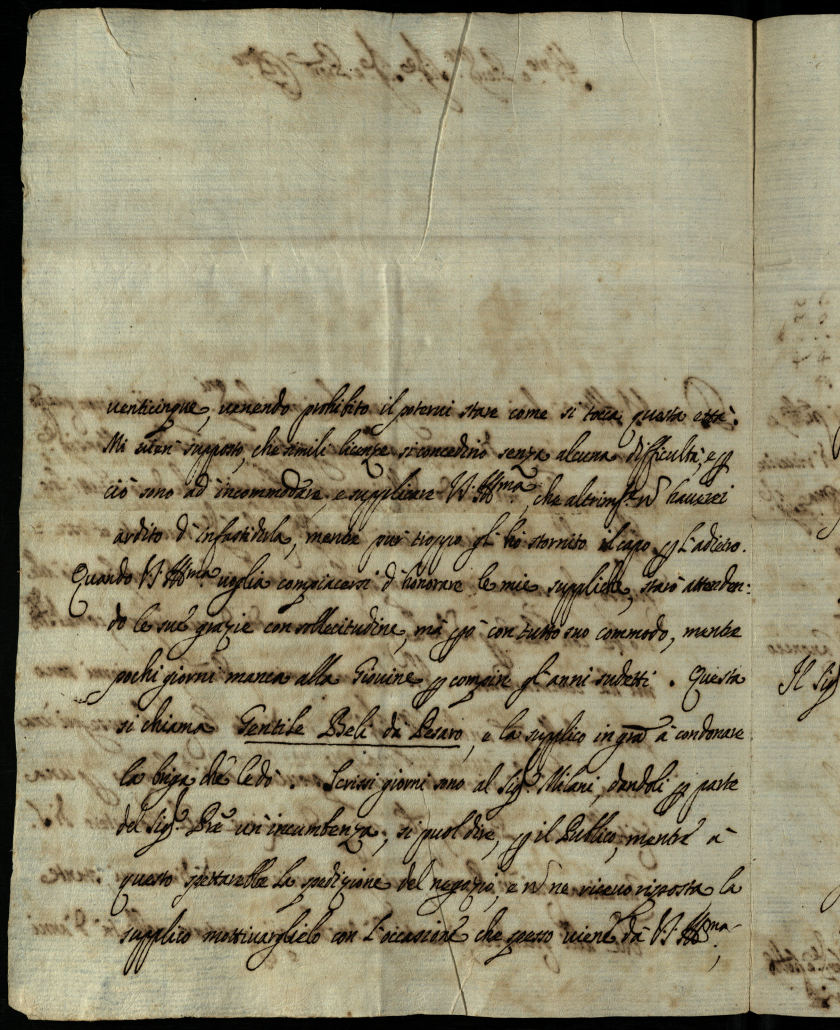 venticinque, venendo prohibito il potervi stare come si tocca questa ettà.
Mi vien supposto, che simili licenze si concedino senza alcuna difficultà, e ꝑ
ciò sono ad incommodare, e supplicare V. Ill.ma, che altrim.te nõ haverei
ardito d'infastidirla, mentre pur troppo gl'hò stornito il capo ꝑ l'adietro.
Quando V. Ill.ma voglia compiacersi d'honorare le mie suppliche, starò attenden:
do le sue grazie con sollecitudine, mà ꝑò con tutto suo commodo, mentre
pochi giorni manca alla Giovine ꝑ compire gl'anni sudetti. Questa
si chiama Gentile Beli da Pesaro, e la supplico in gra à condonare
la briga che le dò. Scrissi giorni sono al Sig.r Milani, dandoli ꝑ parte
del Sig.r Prē un'incumbenza, si puol dire, ꝑ il Publico, mentre à
questo spettarebbe la spedizione del negozio, e nõ ne ricevo risposta la
supplico mottivarglielo con l'occasione che spesso viene da V. Ill.ma;
Il Sig